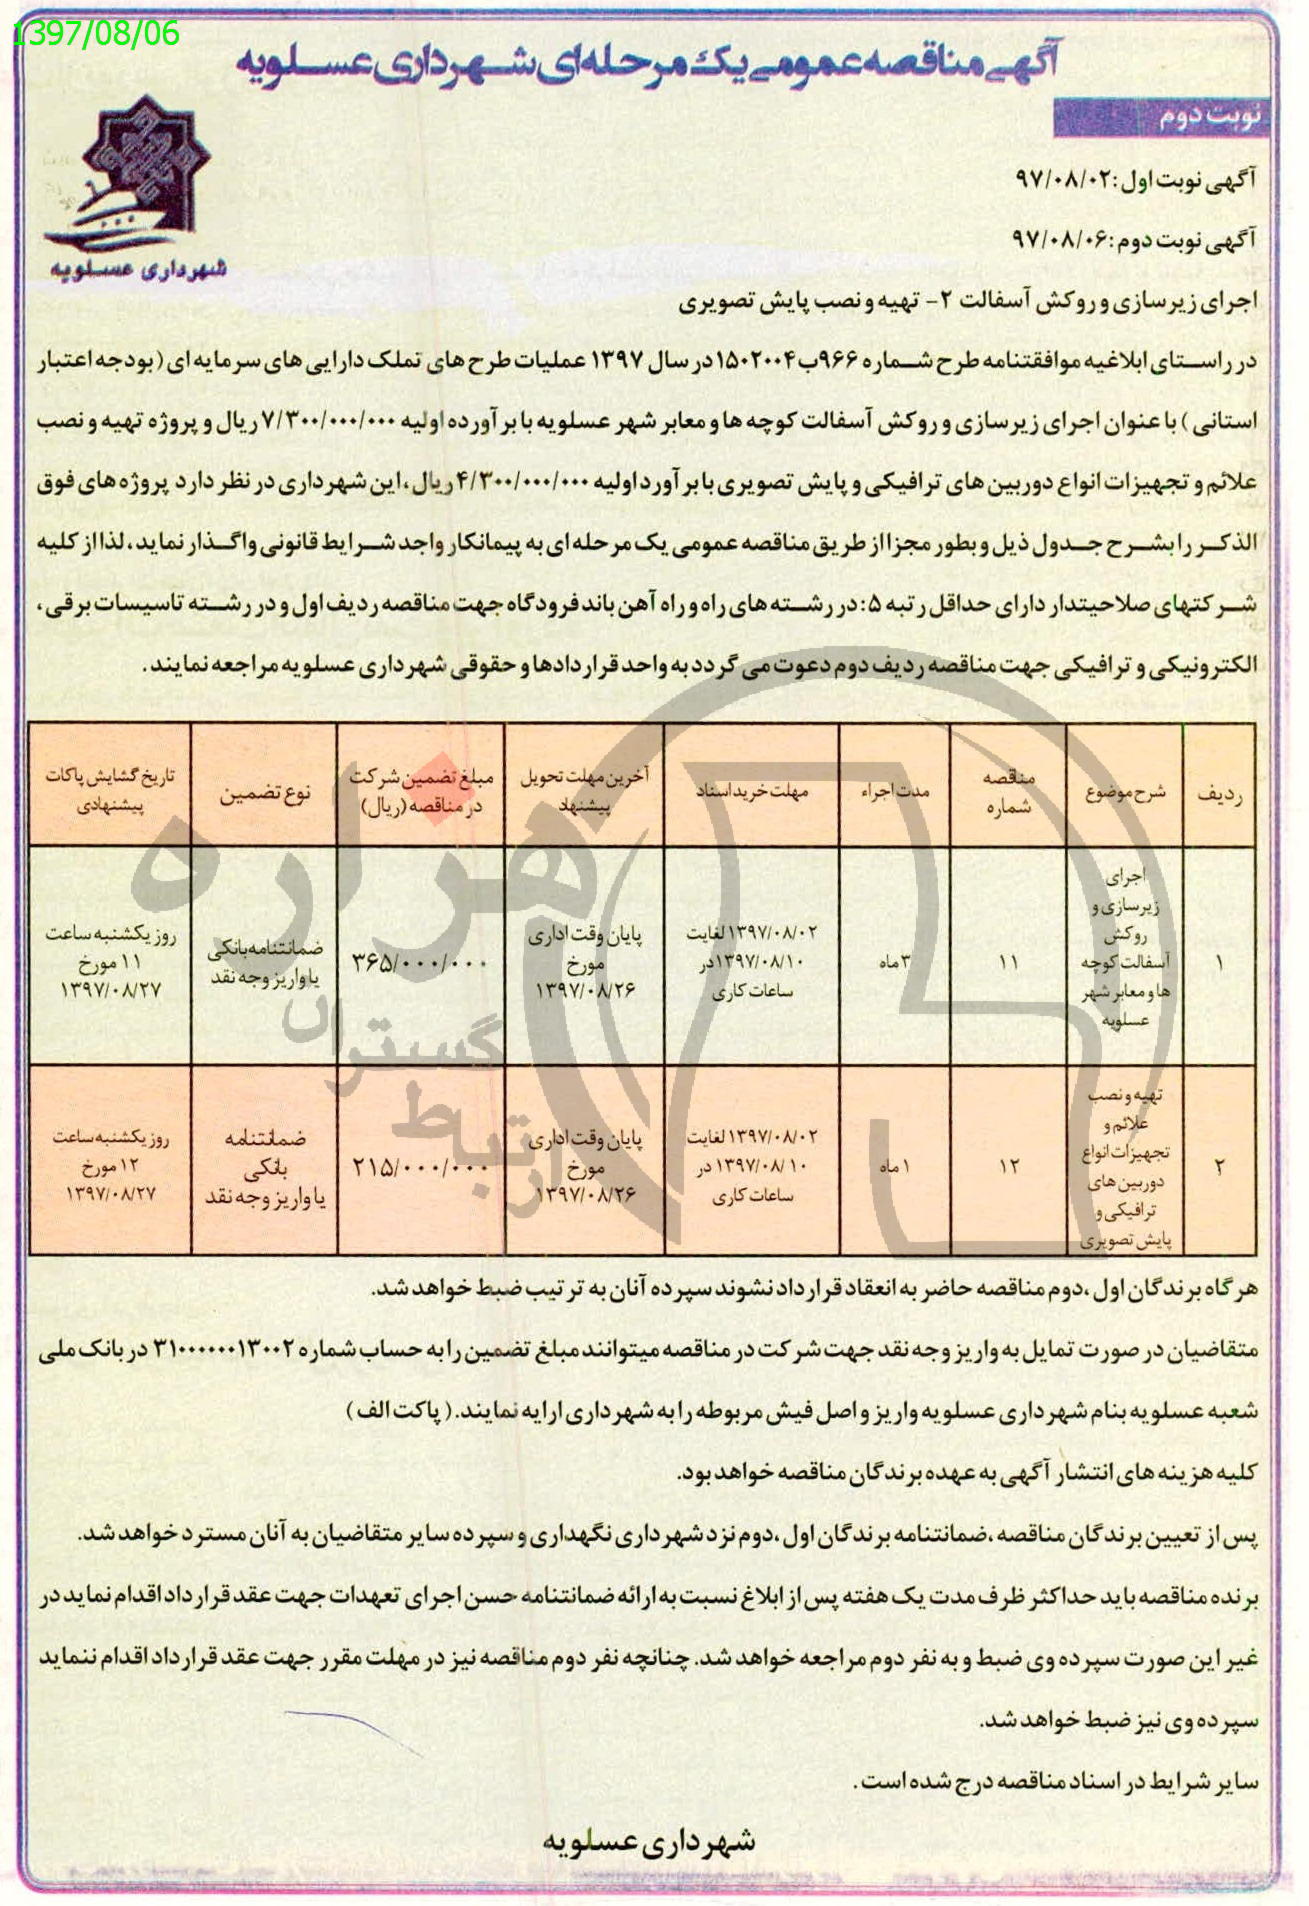 1397/08/06
آگهی مناقصه عمومی یک مرحله ای شهرداری عسلویه
نوبت دوم
شهرداری عسلویه
آگهی نوبت اول: ۹۷/۰۸/۰۲
آگهی نوبت دوم: ۹۷/۰۸/۰۶
اجرای زیرسازی و روکش آسفالت ۲- تهیه و نصب پایش تصویری
در راستای ابلاغیه موافقتنامه طرح شماره ۹۶۶ب۱۵۰۲۰۰۴ در سال ۱۳۹۷ عملیات طرح های تملک دارایی های سرمایه ای (بودجه اعتبار
استانی) با عنوان اجرای زیرسازی و روکش آسفالت کوچه ها و معابر شهر عسلویه با برآورده اولیه ۷/۳۰۰/۰۰۰/۰۰۰ ریال و پروژه تهیه و نصب
علائم و تجهیزات انواع دوربین های ترافیکی و پایش تصویری با برآورد اولیه ۴/۳۰۰/۰۰۰/۰۰۰ ریال، این شهرداری در نظر دارد پروژه های فوق
الذکر را بشرح جدول ذیل و بطور مجزا از طریق مناقصه عمومی یک مرحله ای به پیمانکار واجد شرایط قانونی واگذار نماید، لذا از کلیه
شرکتهای صلاحیتدار دارای حداقل رتبه ۵: در رشته های راه و راه آهن باند فرودگاه جهت مناقصه ردیف اول و در رشته تاسیسات برقی،
الکترونیکی و ترافیکی جهت مناقصه ردیف دوم دعوت می گردد به واحد قراردادها و حقوقی شهرداری عسلویه مراجعه نمایند.
ردیف
شرح موضوع
مناقصه
شماره
مدت اجراء
مهلت خرید اسناد
آخرین مهلت تحویل
پیشنهاد
مبلغ تضمین شرکت
در مناقصه (ریال)
نوع تضمین
تاریخ گشایش پاکات
پیشنهادی
۱
اجرای
زیرسازی و
روکش
آسفالت کوچه
ها و معابر شهر
عسلویه
۱۱
۳ ماه
۱۳۹۷/۰۸/۰۲ لغایت
۱۳۹۷/۰۸/۱۰ در
ساعات کاری
پایان وقت اداری
مورخ
۱۳۹۷/۰۸/۲۶
۳۶۵/۰۰۰/۰۰۰
ضمانتنامه بانکی
یا واریز وجه نقد
روز یکشنبه ساعت
۱۱ مورخ
۱۳۹۷/۰۸/۲۷
۲
تهیه و نصب
علائم و
تجهیزات انواع
دوربین های
ترافیکی و
پایش تصویری
۱۲
۱ ماه
۱۳۹۷/۰۸/۰۲ لغایت
۱۳۹۷/۰۸/۱۰ در
ساعات کاری
پایان وقت اداری
مورخ
۱۳۹۷/۰۸/۲۶
۲۱۵/۰۰۰/۰۰۰
ضمانتنامه
بانکی
یا واریز وجه نقد
روز یکشنبه ساعت
۱۲ مورخ
۱۳۹۷/۰۸/۲۷
هزاره
گستران
ارتباط
هرگاه برندگان اول، دوم مناقصه حاضر به انعقاد قرارداد نشوند سپرده آنان به ترتیب ضبط خواهد شد.
متقاضیان در صورت تمایل به واریز وجه نقد جهت شرکت در مناقصه میتوانند مبلغ تضمین را به حساب شماره ۳۱۰۰۰۰۰۰۱۳۰۰۲ در بانک ملی
شعبه عسلویه بنام شهرداری عسلویه واریز و اصل فیش مربوطه را به شهرداری ارایه نمایند. (پاکت الف)
کلیه هزینه های انتشار آگهی به عهده برندگان مناقصه خواهد بود.
پس از تعیین برندگان مناقصه، ضمانتنامه برندگان اول، دوم نزد شهرداری نگهداری و سپرده سایر متقاضیان به آنان مسترد خواهد شد.
برنده مناقصه باید حداکثر ظرف مدت یک هفته پس از ابلاغ نسبت به ارائه ضمانتنامه حسن اجرای تعهدات جهت عقد قرارداد اقدام نماید در
غیر این صورت سپرده وی ضبط و به نفر دوم مراجعه خواهد شد. چنانچه نفر دوم مناقصه نیز در مهلت مقرر جهت عقد قرارداد اقدام ننماید
سپرده وی نیز ضبط خواهد شد.
سایر شرایط در اسناد مناقصه درج شده است.
شهرداری عسلویه